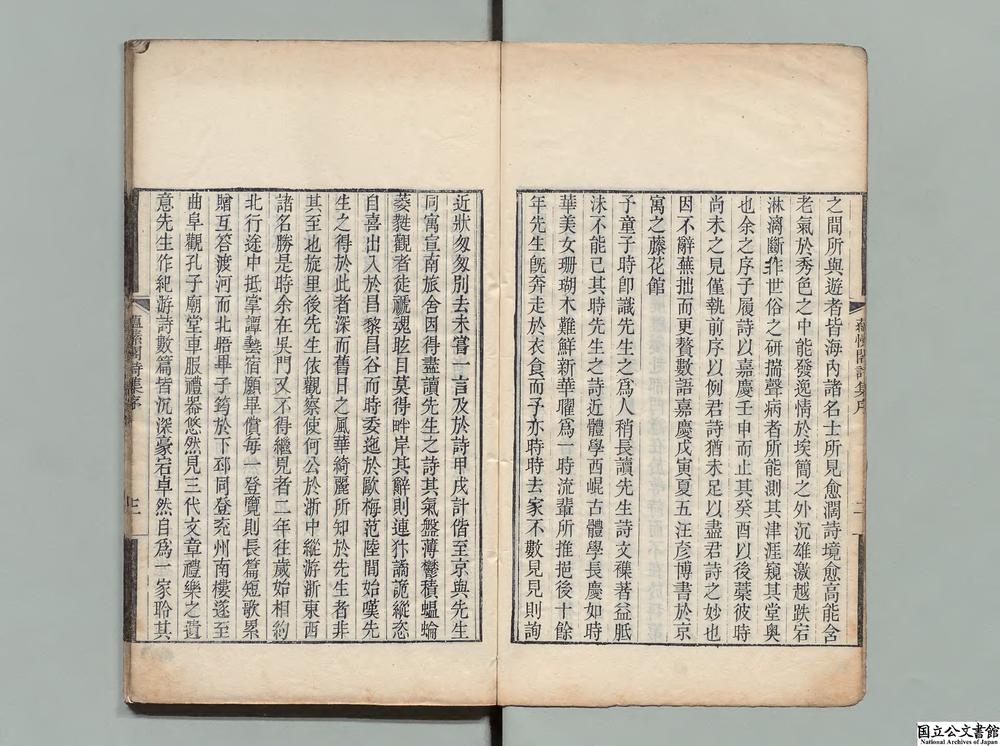 之間所與遊者皆海內諸名士所見愈濶詩境愈高能含
老氣於秀色之中能發逸情於埃𡏖之外沉雄激越跌宕
淋漓斷非世俗之研揣聲病者所能測其津涯窺其堂奧
也余之序子履詩以嘉慶壬申而止其癸酉以後藁彼時
尚未之見僅執前序以例君詩猶未足以盡君詩之妙也
因不辭蕪拙而更贅數語嘉慶戊寅夏五汪彥博書於京
寓之藤花館
子童子時卽識先生之爲人稍長讀先生詩文襍著益胝
沬不能己其時先生之詩近體學西崐古體學長慶如時
華美女珊瑚木難鮮新華曜爲一時流輩所推挹後十餘
年先生旣奔走於衣食而予亦時時去家不數見見則詢
蘊愫閣詩集序
二
近狀匆匆別去未嘗一言及於詩甲戌計偕至京與先生
同寓宣南旅舍因得盡讀先生之詩其氣盤薄鬱積蝹蜦
蔆㲚觀者徒褫魂眩目莫得畔岸其辭則連犿譎詭縱恣
自喜出入於昌黎昌谷而時委迤於歐梅范陸間始嘆先
生之得於此者深而舊日之風華綺麗所知於先生者非
其至也旋里後先生依觀察使何公於浙中縱游浙東西
諸名勝是時余在吳門又不得繼見者二年往歲始相約
北行途中抵掌譚藝宿願畢償每一登覽則長篇短歌累
贈互答渡河而北晤畢子筠於下邳同登兖州南樓遂至
曲阜觀孔子廟堂車服禮器悠然見三代文章禮樂之遺
意先生作紀游詩數篇皆沉深豪宕卓然自爲一家聆其
蘊愫閣詩集序
国立公文書館
National Archives of Japan